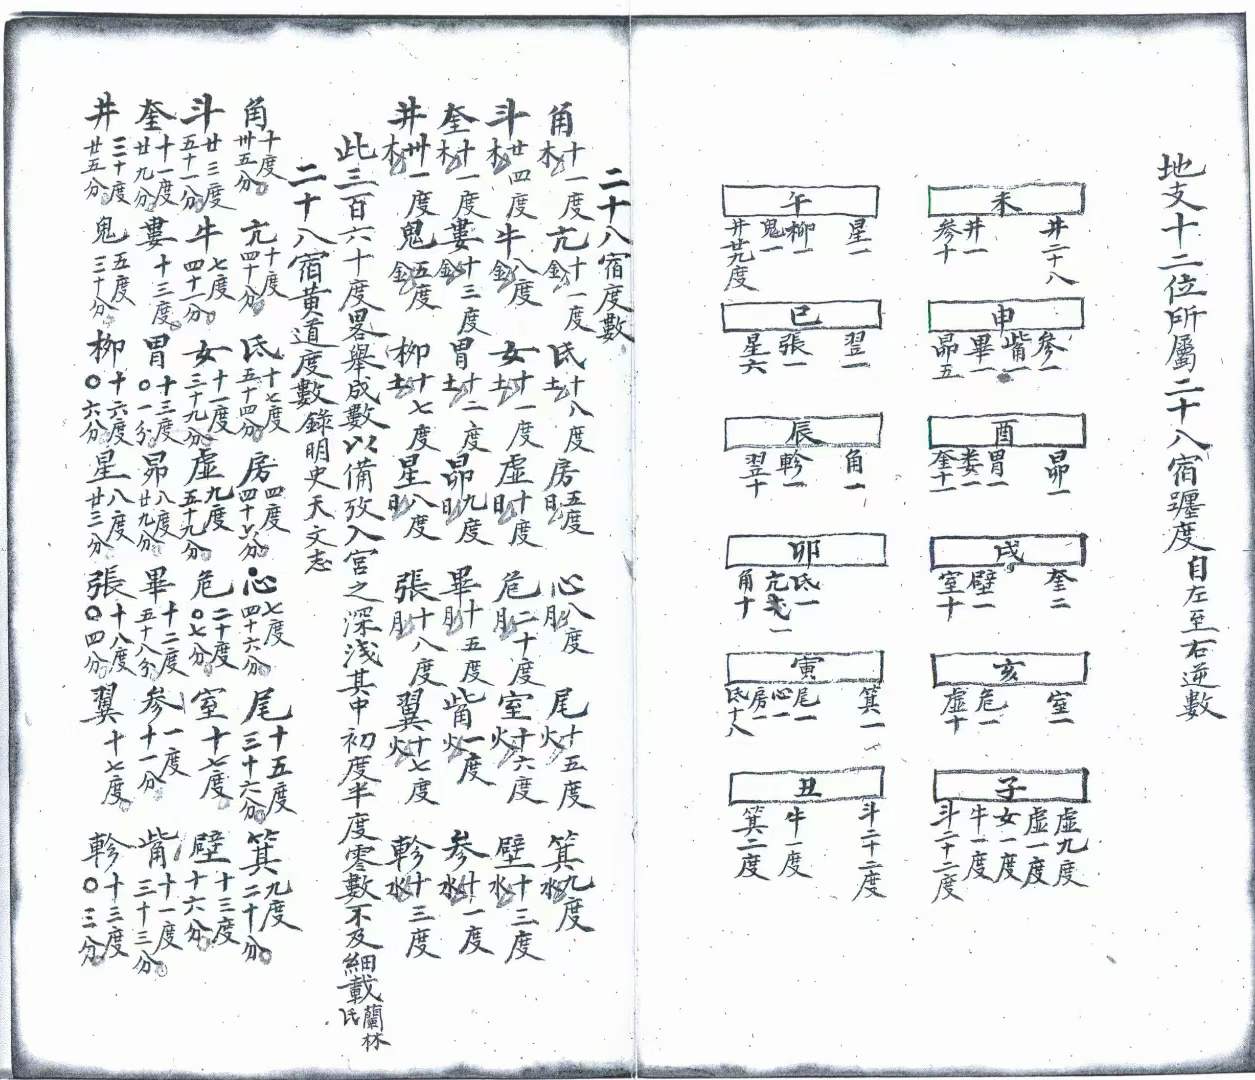 地支十二位所屬二十八宿躔度自左至右逆數
未
井二十八
井一
參十
申
參一
觜一
畢一
昴五
酉
昴一
胃一
娄一
奎十一
戌
奎二
壁一
室十
亥
室一
危一
虛十
子
虛九度
虛一度
女一度
牛一度
斗二十二度
午
星一
柳一
鬼一
井廿九度
巳
翌一
張一
星六
辰
角一
軫一
翌十
卯
氐一
亢一
角十
寅
箕一
尾一
心一
房一
氐十八
丑
斗二十二度
牛一度
箕二度
二十八宿度數
角木十一度亢金十一度氐土十八度房日五度心月八度尾火十五度箕水九度
斗木廿四度牛金八度女土十一度虛日十度危月二十度室火十六度壁水十三度
奎木十一度婁金十三度胃土十二度昴日九度畢月十五度觜火一度參水十一度
井木卅一度鬼金五度柳土十七度星日八度張月十八度翼火十七度軫水十三度
此三百六十度畧舉成數以備攷入宮之深浅其中初度半度零數不及細載蘭林氏
二十八宿黄道度數錄明史天文志
角十度卅五分亢十度四十分氐十七度五十四分房四度四十六分心七度四十六分尾十五度三十六分箕九度二十分
斗廿三度五十一分牛七度四十一分女十一度三十九分虛九度五十九分危二十度〇七分室十七度壁十三度十六分
奎十一度廿九分婁十三度胃十三度〇一分昴八度廿九分畢十二度五十八分參一度十一分觜十一度三十三分
井三十度廿五分鬼五度三十分柳十六度〇六分星八度廿三分張十八度〇四分翼十七度軫十三度〇三分